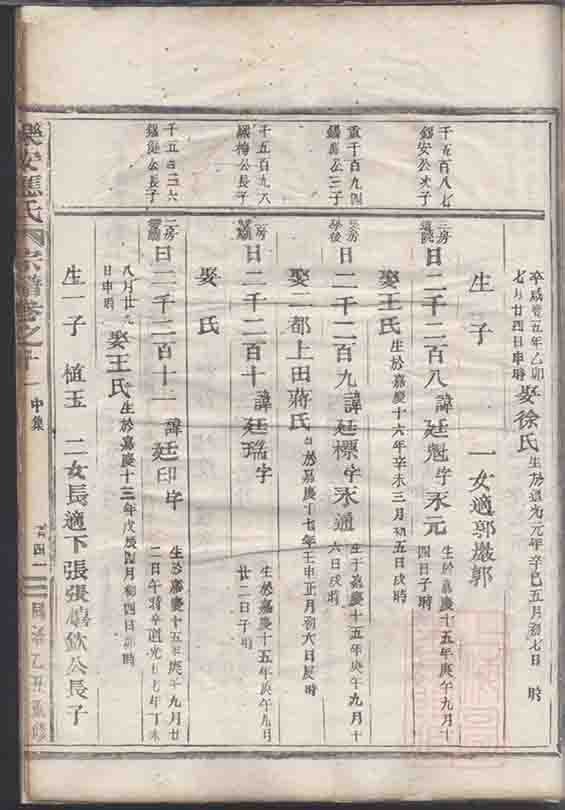 卒咸豐五年乙卯七月廿四日申時 娶徐氏 生於道光元年辛巳五月初七日 時
生子 一女適郭巖郭
千五百八七 公次子
房 日二千二百八 諱廷魁字永元 生於嘉慶十五年庚午九月十四日子時
娶王氏 生於嘉慶十六年辛未三月初五日戌時
千百九四 公三子
房 日二千二百九 諱廷標字永通 生于嘉慶十五年庚午九月十六日戌時
娶二都上田蔣氏 於嘉慶十七年壬申正月初六日辰時
千五百九六 梅公長子
房 日二千二百十 諱廷瑞字 生於嘉慶十五年庚午九月廿二日子時
娶 氏
千五百三六 公長子
房 日二千二百十二 諱廷印字 生於嘉慶十五年庚午九月廿二日午時卒道光十七年丁未八月廿 日申時
娶王氏 生於嘉慶十三年戊辰四月初四日 時
生一子 植玉 二女長適下張張 欽公長子
樂安應氏 宗譜卷之十一 中集